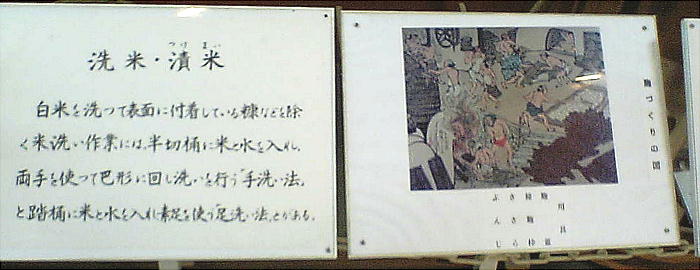 洗米・漬米
つけ まい
白米を洗つて表面に付着している糠などを除
く米洗い作業には、半切桶に米と水を入れ、
両手を使つて巴形に回し洗いを行う「手洗い法」
と踏桶に米と水を入れ素足を使う「足洗い法」とがある。
麹づくりの図
用具